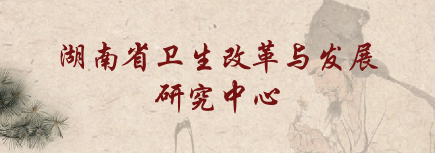 湖南省卫生改革与发展
研究中心